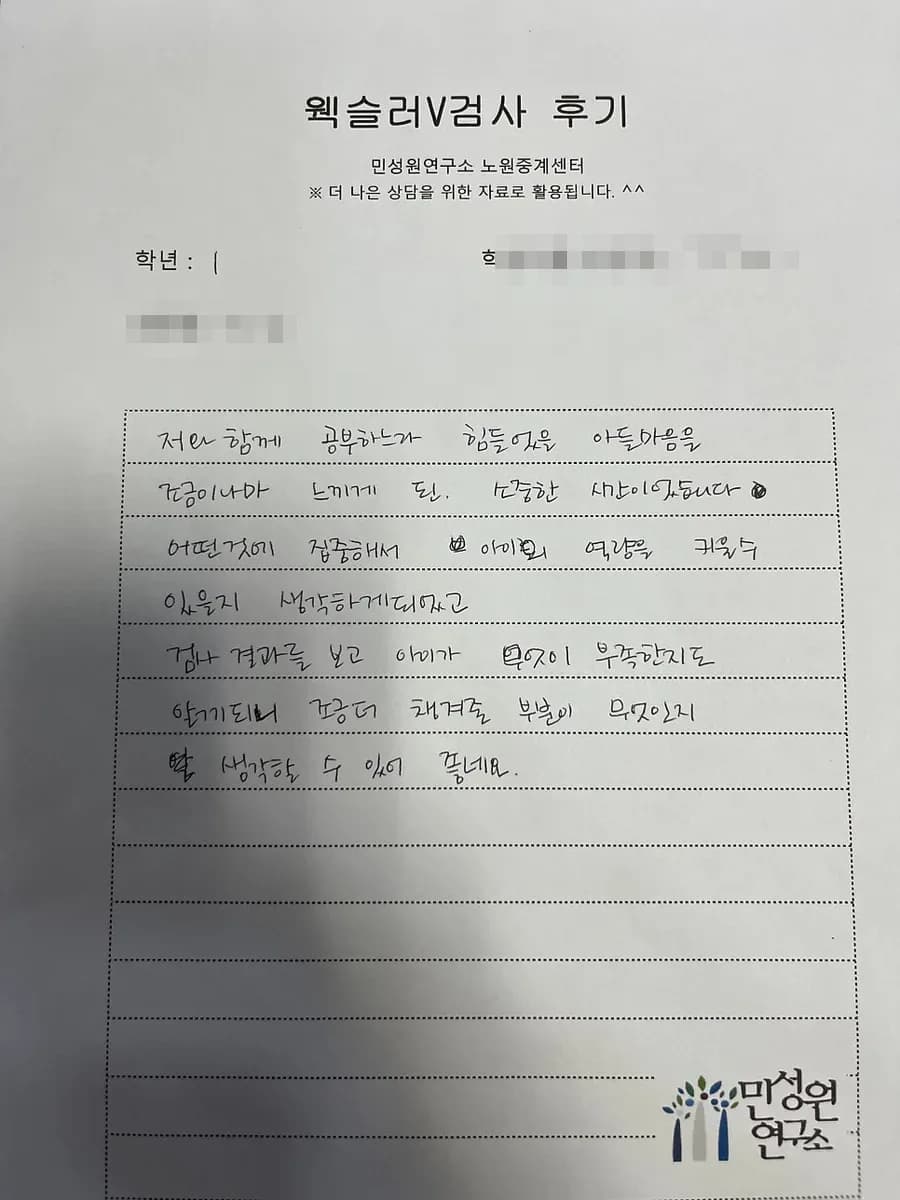 웩슬러V검사 후기
민성원연구소 노원중계센터
※ 더 나은 상담을 위한 자료로 활용됩니다. ^^
학년 : 1
학
저와 함께 공부하느라 힘들었을 아들마음을
조금이나마 느끼게 된. 소중한 시간이었습니다
어떤것에 집중해서 아이의 역량을 키울수
있을지 생각하게되었고
검사 결과를 보고 아이가 무엇이 부족한지도
알게되니 조금더 챙겨줄 부분이 무엇인지
생각할 수 있어 좋네요.
민성원
연구소